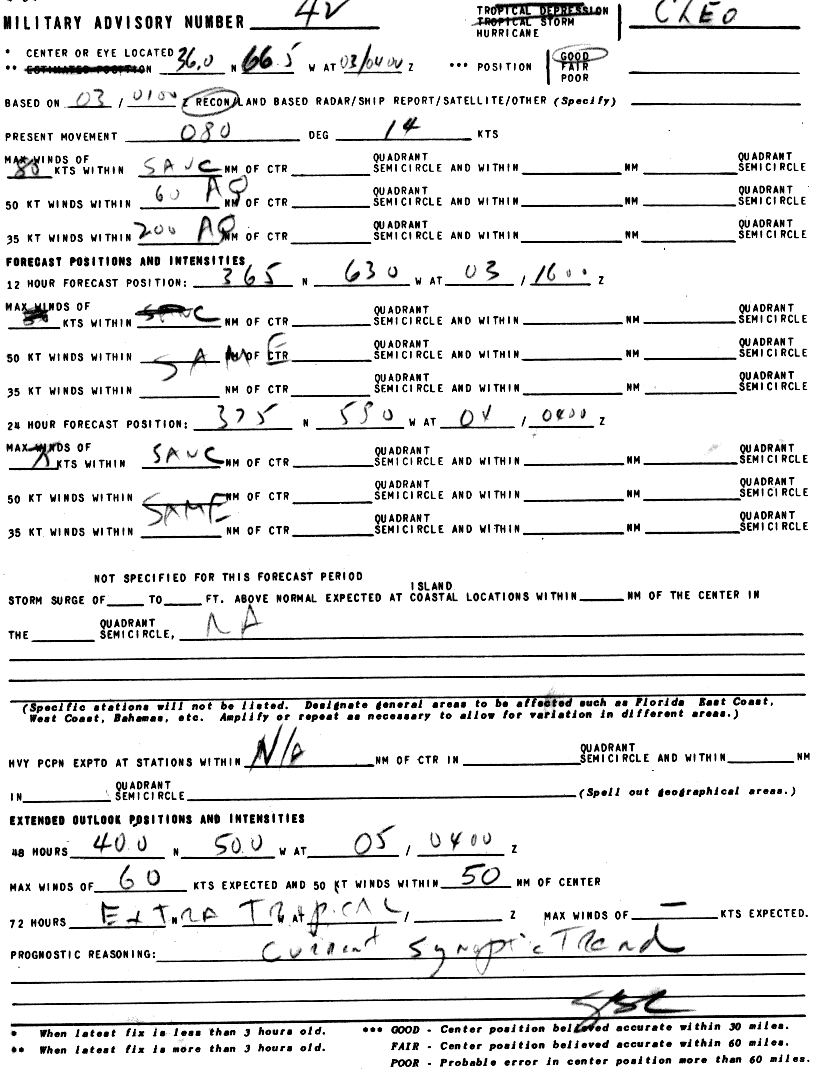 MILITARY ADVISORY NUMBER 42 TROPICAL DEPRESSION TROPICAL STORM HURRICANE CLEO
* CENTER OR EYE LOCATED
** ESTIMATED POSITION 36.0 N 66.5 W AT 03/0400 Z *** POSITION GOOD FAIR POOR
BASED ON 03 / 0100 Z RECON/LAND BASED RADAR/SHIP REPORT/SATELLITE/OTHER (Specify)
PRESENT MOVEMENT 080 DEG 14 KTS
MAX WINDS OF QUADRANT QUADRANT
80 KTS WITHIN NM OF CTR SEMICIRCLE AND WITHIN NM SEMICIRCLE
QUADRANT QUADRANT
50 KT WINDS WITHIN 60 AQ NM OF CTR SEMICIRCLE AND WITHIN NM SEMICIRCLE
QUADRANT QUADRANT
35 KT WINDS WITHIN 200 AQ NM OF CTR SEMICIRCLE AND WITHIN NM SEMICIRCLE
FORECAST POSITIONS AND INTENSITIES
12 HOUR FORECAST POSITION: 365 N 630 W AT 03 / 1600 Z
MAX WINDS OF QUADRANT QUADRANT
KTS WITHIN NM OF CTR SEMICIRCLE AND WITHIN NM SEMICIRCLE
QUADRANT QUADRANT
50 KT WINDS WITHIN SAME NM OF CTR SEMICIRCLE AND WITHIN NM SEMICIRCLE
QUADRANT QUADRANT
35 KT WINDS WITHIN NM OF CTR SEMICIRCLE AND WITHIN NM SEMICIRCLE
24 HOUR FORECAST POSITION: 375 N 590 W AT 04 / 0400 Z
MAX WINDS OF QUADRANT QUADRANT
KTS WITHIN NM OF CTR SEMICIRCLE AND WITHIN NM SEMICIRCLE
QUADRANT QUADRANT
50 KT WINDS WITHIN SAME NM OF CTR SEMICIRCLE AND WITHIN NM SEMICIRCLE
QUADRANT QUADRANT
35 KT WINDS WITHIN NM OF CTR SEMICIRCLE AND WITHIN NM SEMICIRCLE
NOT SPECIFIED FOR THIS FORECAST PERIOD
ISLAND
STORM SURGE OF TO FT. ABOVE NORMAL EXPECTED AT COASTAL LOCATIONS WITHIN NM OF THE CENTER IN
QUADRANT
THE SEMICIRCLE, NA
(Specific stations will not be listed. Designate general areas to be affected such as Florida East Coast,
West Coast, Bahamas, etc. Amplify or repeat as necessary to allow for variation in different areas.)
QUADRANT
HVY PCPN EXPTD AT STATIONS WITHIN N/A NM OF CTR IN SEMICIRCLE AND WITHIN NM
QUADRANT
IN SEMICIRCLE (Spell out geographical areas.)
EXTENDED OUTLOOK POSITIONS AND INTENSITIES
48 HOURS 40.0 N 50.0 W AT 05 / 0400 Z
MAX WINDS OF 60 KTS EXPECTED AND 50 KT WINDS WITHIN 50 NM OF CENTER
72 HOURS EXTRA TROPICAL N W AT / Z MAX WINDS OF — KTS EXPECTED.
PROGNOSTIC REASONING: Current Synoptic Trend
* When latest fix is less than 3 hours old. *** GOOD - Center position believed accurate within 30 miles.
** When latest fix is more than 3 hours old. FAIR - Center position believed accurate within 60 miles.
POOR - Probable error in center position more than 60 miles.